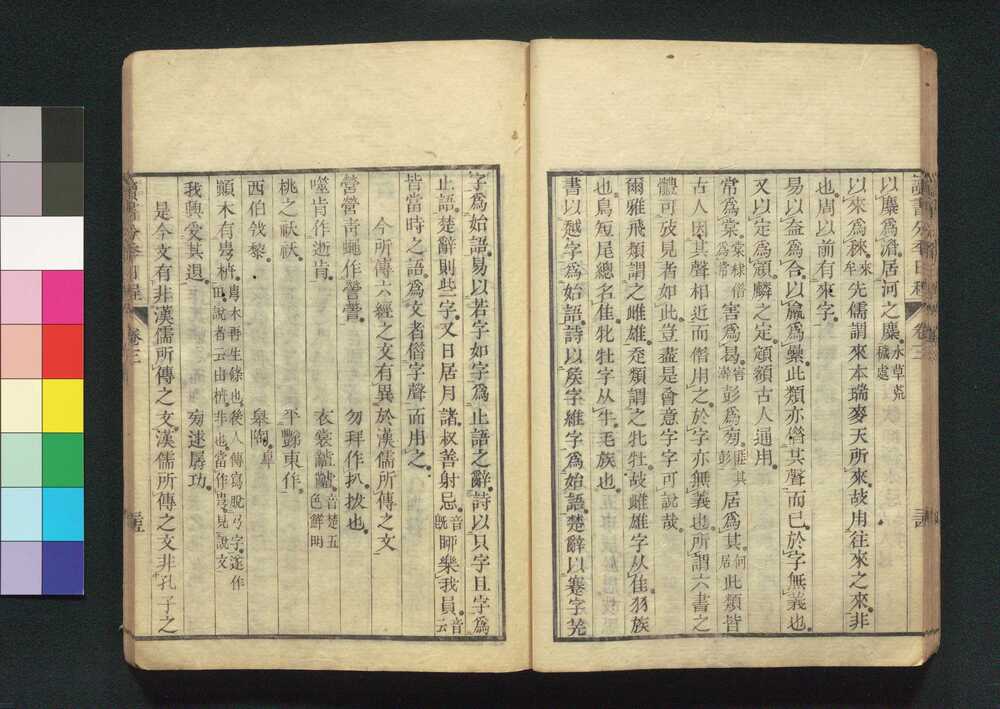 以麋為湄。居河之麋。水草荒穢處
以來為。來牟先儒謂來本瑞麥天所來。故用往來之來。非
也。周以前有來字。
易以盍為合。以為此類亦借其聲而已。於字無義也。
又以定為顁。麟之定。顁額古人通用。
常為棠。棠棣借為常害為曷。害澣彭為旁。匪其彭居為其。何居此類皆
古人因其聲相近而借用之。於字亦無義也。所謂六書之
體可攷見者如此。豈盡是會意字字可說哉。
爾雅飛類謂之雌雄。走類謂之牝牡。故雌雄字从隹。羽族
也。鳥短尾總名隹。牝牡字从牛。毛族也。
書以越字為始語。詩以矦字維字為始語。楚辭以蹇字羌
字為始語。易以若字如字為止語之辭。詩以只字且字為
止語。楚辭則些字。又日居月諸。叔善射忌。音旣師樂我員。音云
皆當時之語。為文者借字聲而用之。
今所傳六經之文有異於漢儒所傳之文
營營青蠅作營營。　勿拜作扒。拔也。
噬肯作逝肯。　衣裳䵝䵝。音楚五色鮮明
桃之枖枖。　平豑東作。
西伯戗黎。　皋陶。
顛木有㽕枿。㽕木再生條也。後人傳寫脫弓字。遂作由。說者云由枿。非也。當作㽕。見說文
我興受其退。　旁逑孱功。
是今文有非漢儒所傳之文。漢儒所傳之文非孔子之
讀書分年日程　卷三